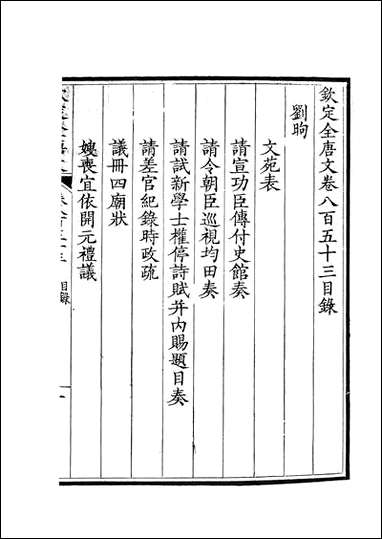 欽定全唐文卷八百五十三目錄
劉昫
文苑表
請宣功臣傳付史館奏
請令朝臣巡視均田奏
請試新學士權停詩賦并內賜題目奏
請差官紀錄時政疏
議冊四廟狀
嫂喪宜依開元禮議
目錄